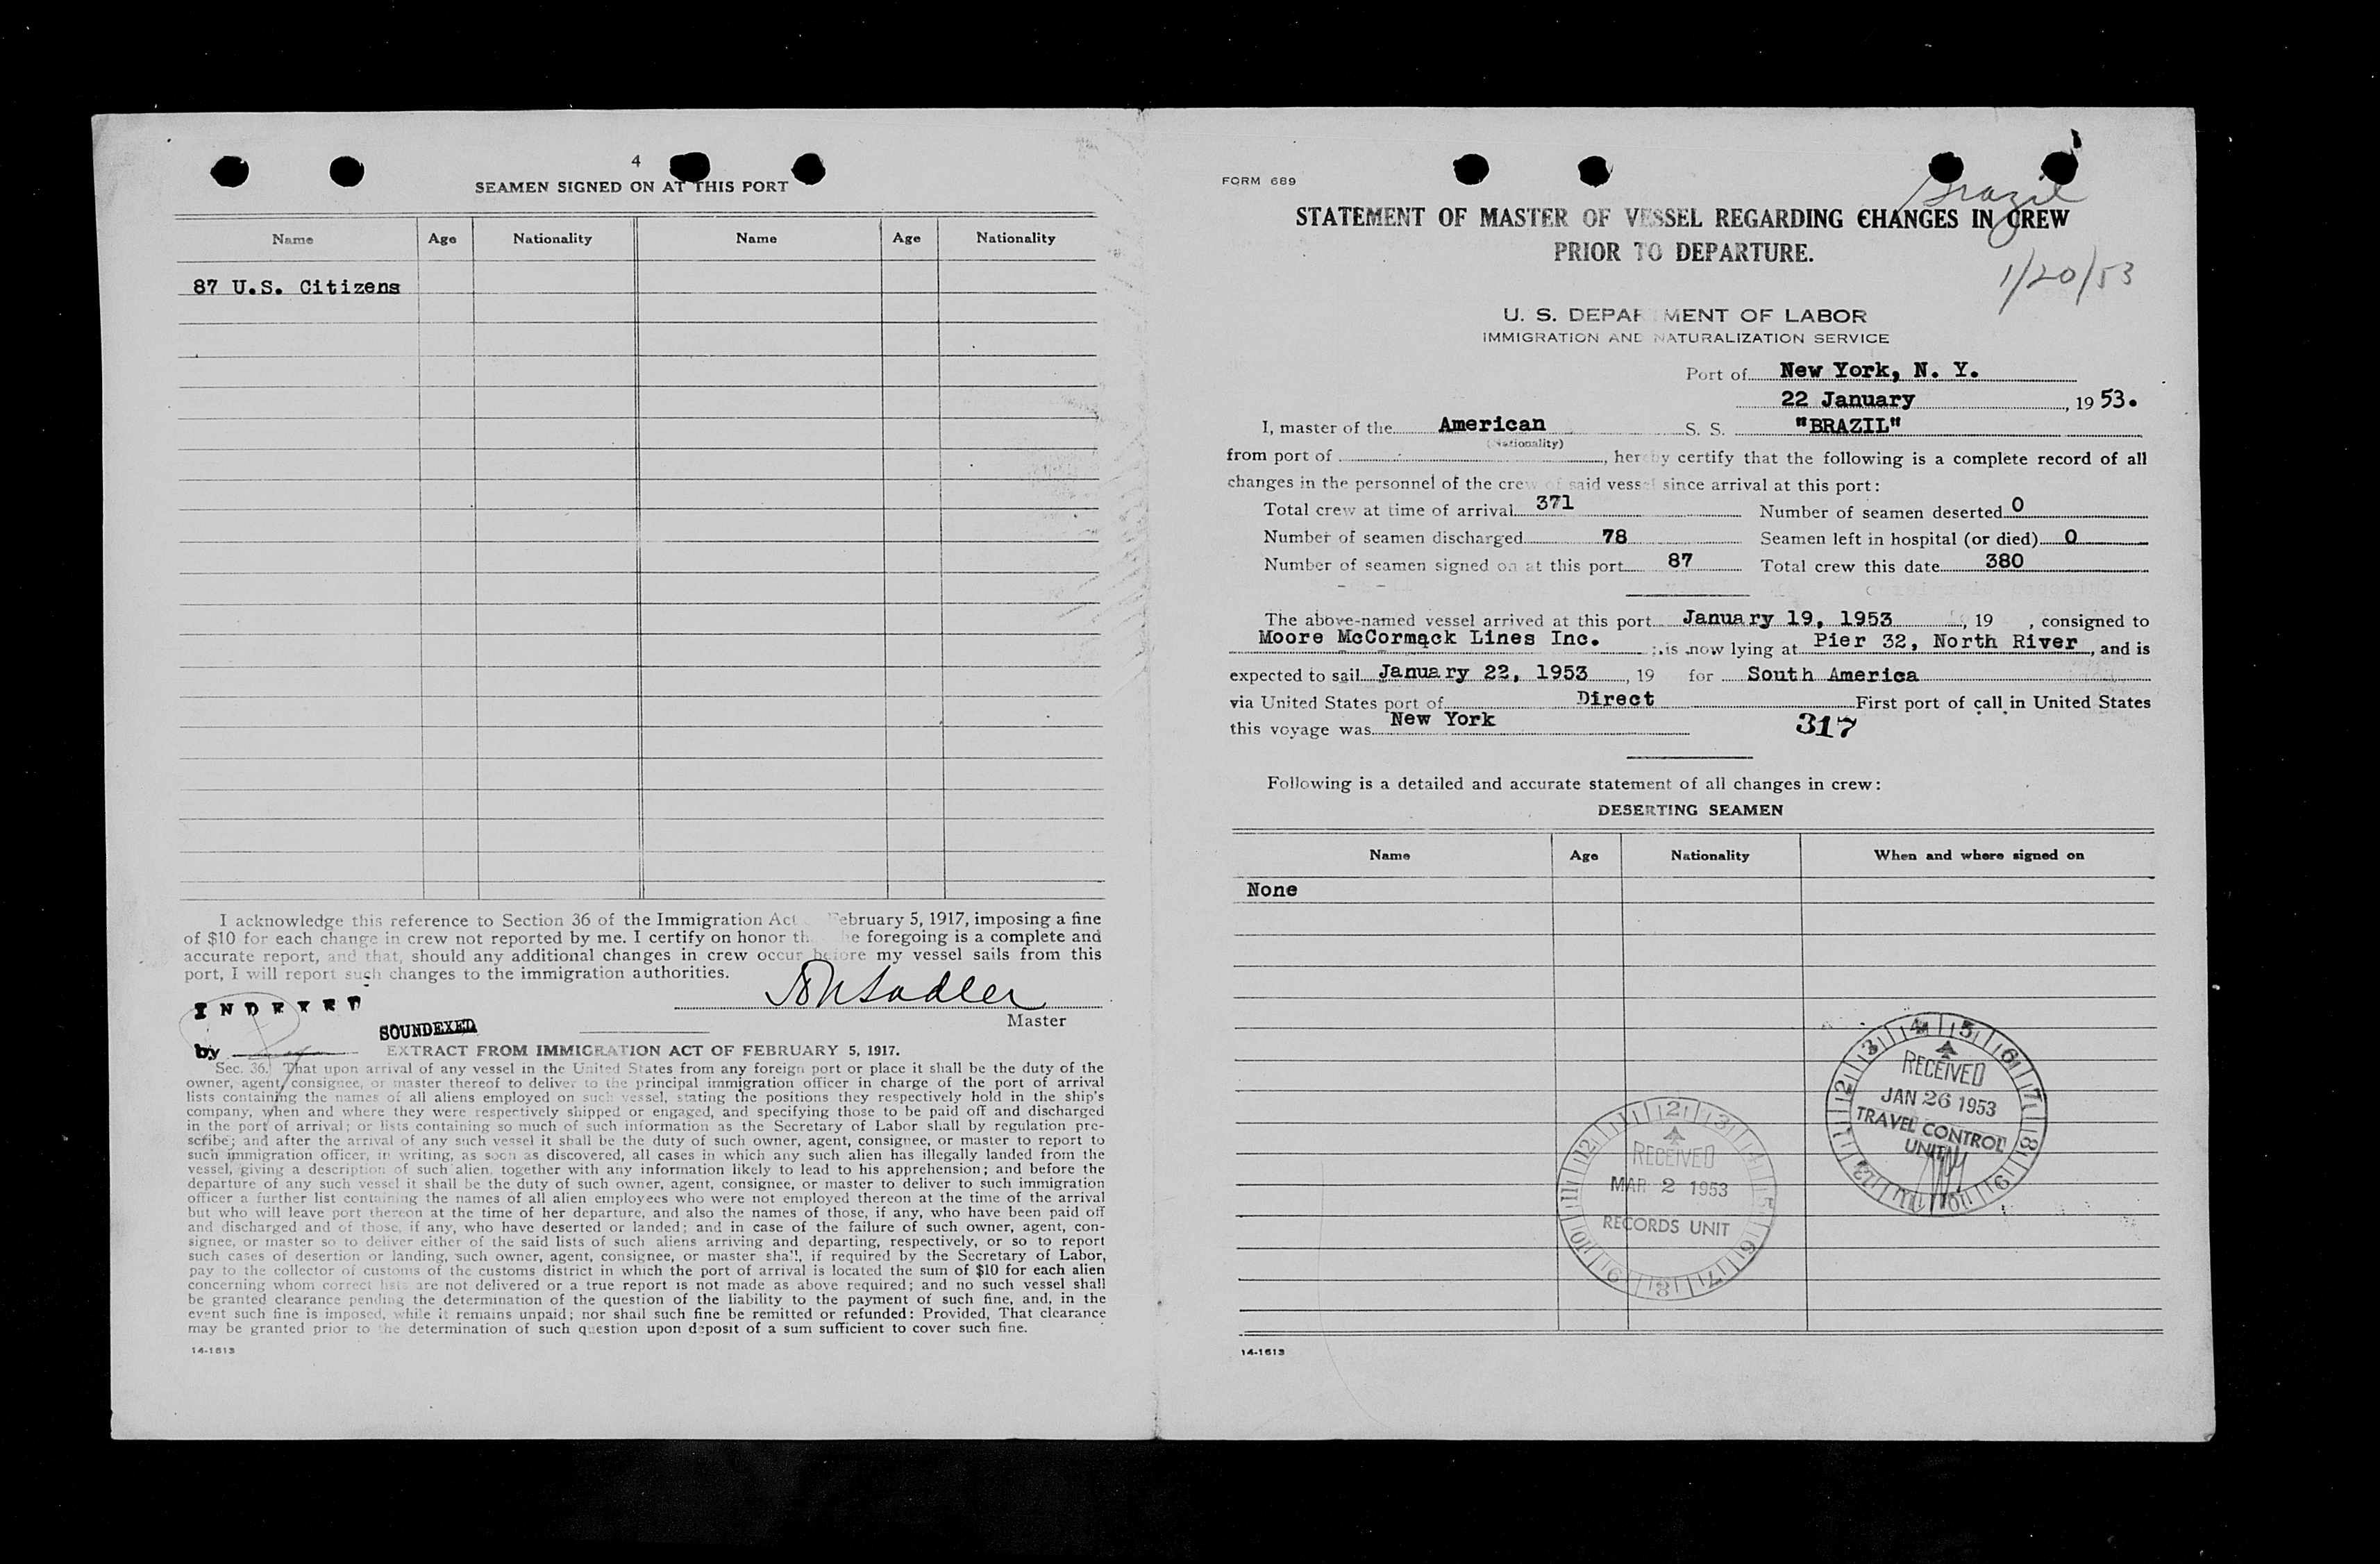 4
SEAMEN SIGNED ON AT THIS PORT
Name Age Nationality Name Age Nationality
87 U.S. Citizens
I acknowledge this reference to Section 36 of the Immigration Act February 5, 1917, imposing a fine
of $10 for each change in crew not reported by me. I certify on honor the foregoing is a complete and
accurate report, and that, should any additional changes in crew occur before my vessel sails from this
port, I will report such changes to the immigration authorities.
Sadler
Master
INDEXED
SOUNDEXED
by
EXTRACT FROM IMMIGRATION ACT OF FEBRUARY 5, 1917.
Sec. 36. That upon arrival of any vessel in the United States from any foreign port or place it shall be the duty of the
owner, agent, consignee, or master thereof to deliver to the principal immigration officer in charge of the port of arrival
lists containing the names of all aliens employed on such vessel, stating the positions they respectively hold in the ship's
company, when and where they were respectively shipped or engaged, and specifying those to be paid off and discharged
in the port of arrival; or lists containing so much of such information as the Secretary of Labor shall by regulation pre-
scribe; and after the arrival of any such vessel it shall be the duty of such owner, agent, consignee, or master to report to
such immigration officer, in writing, as soon as discovered, all cases in which any such alien has illegally landed from the
vessel, giving a description of such alien, together with any information likely to lead to his apprehension; and before the
departure of any such vessel it shall be the duty of such owner, agent, consignee, or master to deliver to such immigration
officer a further list containing the names of all alien employees who were not employed thereon at the time of the arrival
but who will leave port thereon at the time of her departure, and also the names of those, if any, who have been paid off
and discharged and of those, if any, who have deserted or landed; and in case of the failure of such owner, agent, con-
signee, or master so to deliver either of the said lists of such aliens arriving and departing, respectively, or so to report
such cases of desertion or landing, such owner, agent, consignee, or master shall, if required by the Secretary of Labor,
pay to the collector of customs of the customs district in which the port of arrival is located the sum of $10 for each alien
concerning whom correct lists are not delivered or a true report is not made as above required; and no such vessel shall
be granted clearance pending the determination of the question of the liability to the payment of such fine, and, in the
event such fine is imposed, while it remains unpaid; nor shall such fine be remitted or refunded: Provided, That clearance
may be granted prior to the determination of such question upon deposit of a sum sufficient to cover such fine.
14-1613
FORM 689
Brazil
STATEMENT OF MASTER OF VESSEL REGARDING CHANGES IN CREW
PRIOR TO DEPARTURE.
1/20/53
U. S. DEPARTMENT OF LABOR
IMMIGRATION AND NATURALIZATION SERVICE
Port of New York, N. Y.
22 January, 19 53.
I, master of the American S. S. "BRAZIL"
(Nationality)
from port of , hereby certify that the following is a complete record of all
changes in the personnel of the crew of said vessel since arrival at this port:
Total crew at time of arrival 371 Number of seamen deserted 0
Number of seamen discharged 78 Seamen left in hospital (or died) 0
Number of seamen signed on at this port 87 Total crew this date 380
The above-named vessel arrived at this port January 19, 1953, 19 , consigned to
Moore McCormack Lines Inc. ; is now lying at Pier 32, North River, and is
expected to sail January 22, 1953, 19 for South America
via United States port of Direct First port of call in United States
this voyage was New York 317
Following is a detailed and accurate statement of all changes in crew:
DESERTING SEAMEN
Name Age Nationality When and where signed on
None
RECEIVED
JAN 26 1953
TRAVEL CONTROL
UNIT
RECEIVED
MAR 2 1953
RECORDS UNIT
14-1613